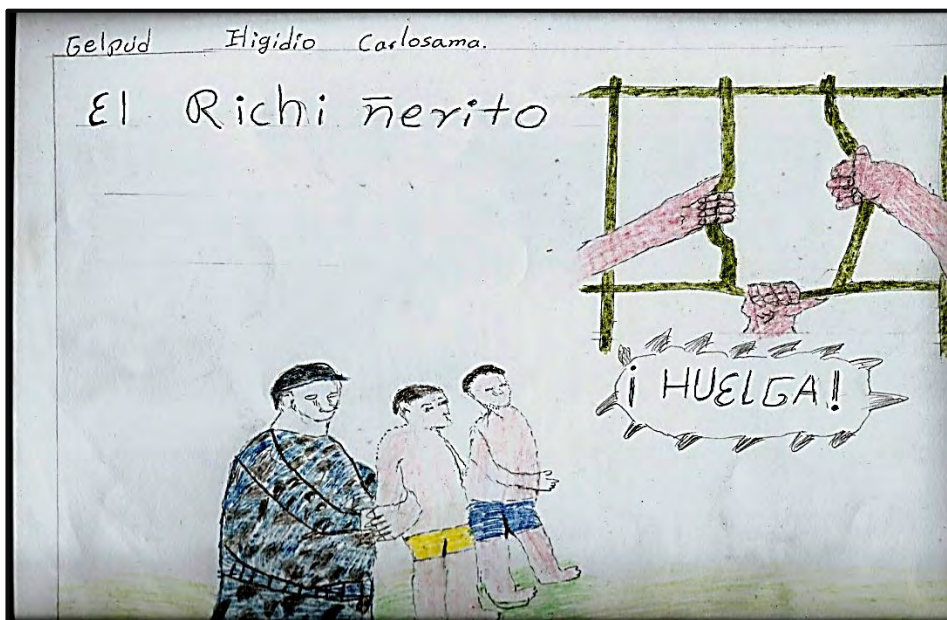 Gelpud Higidio Carlosama.
El Richi ñerito
¡HUELGA!